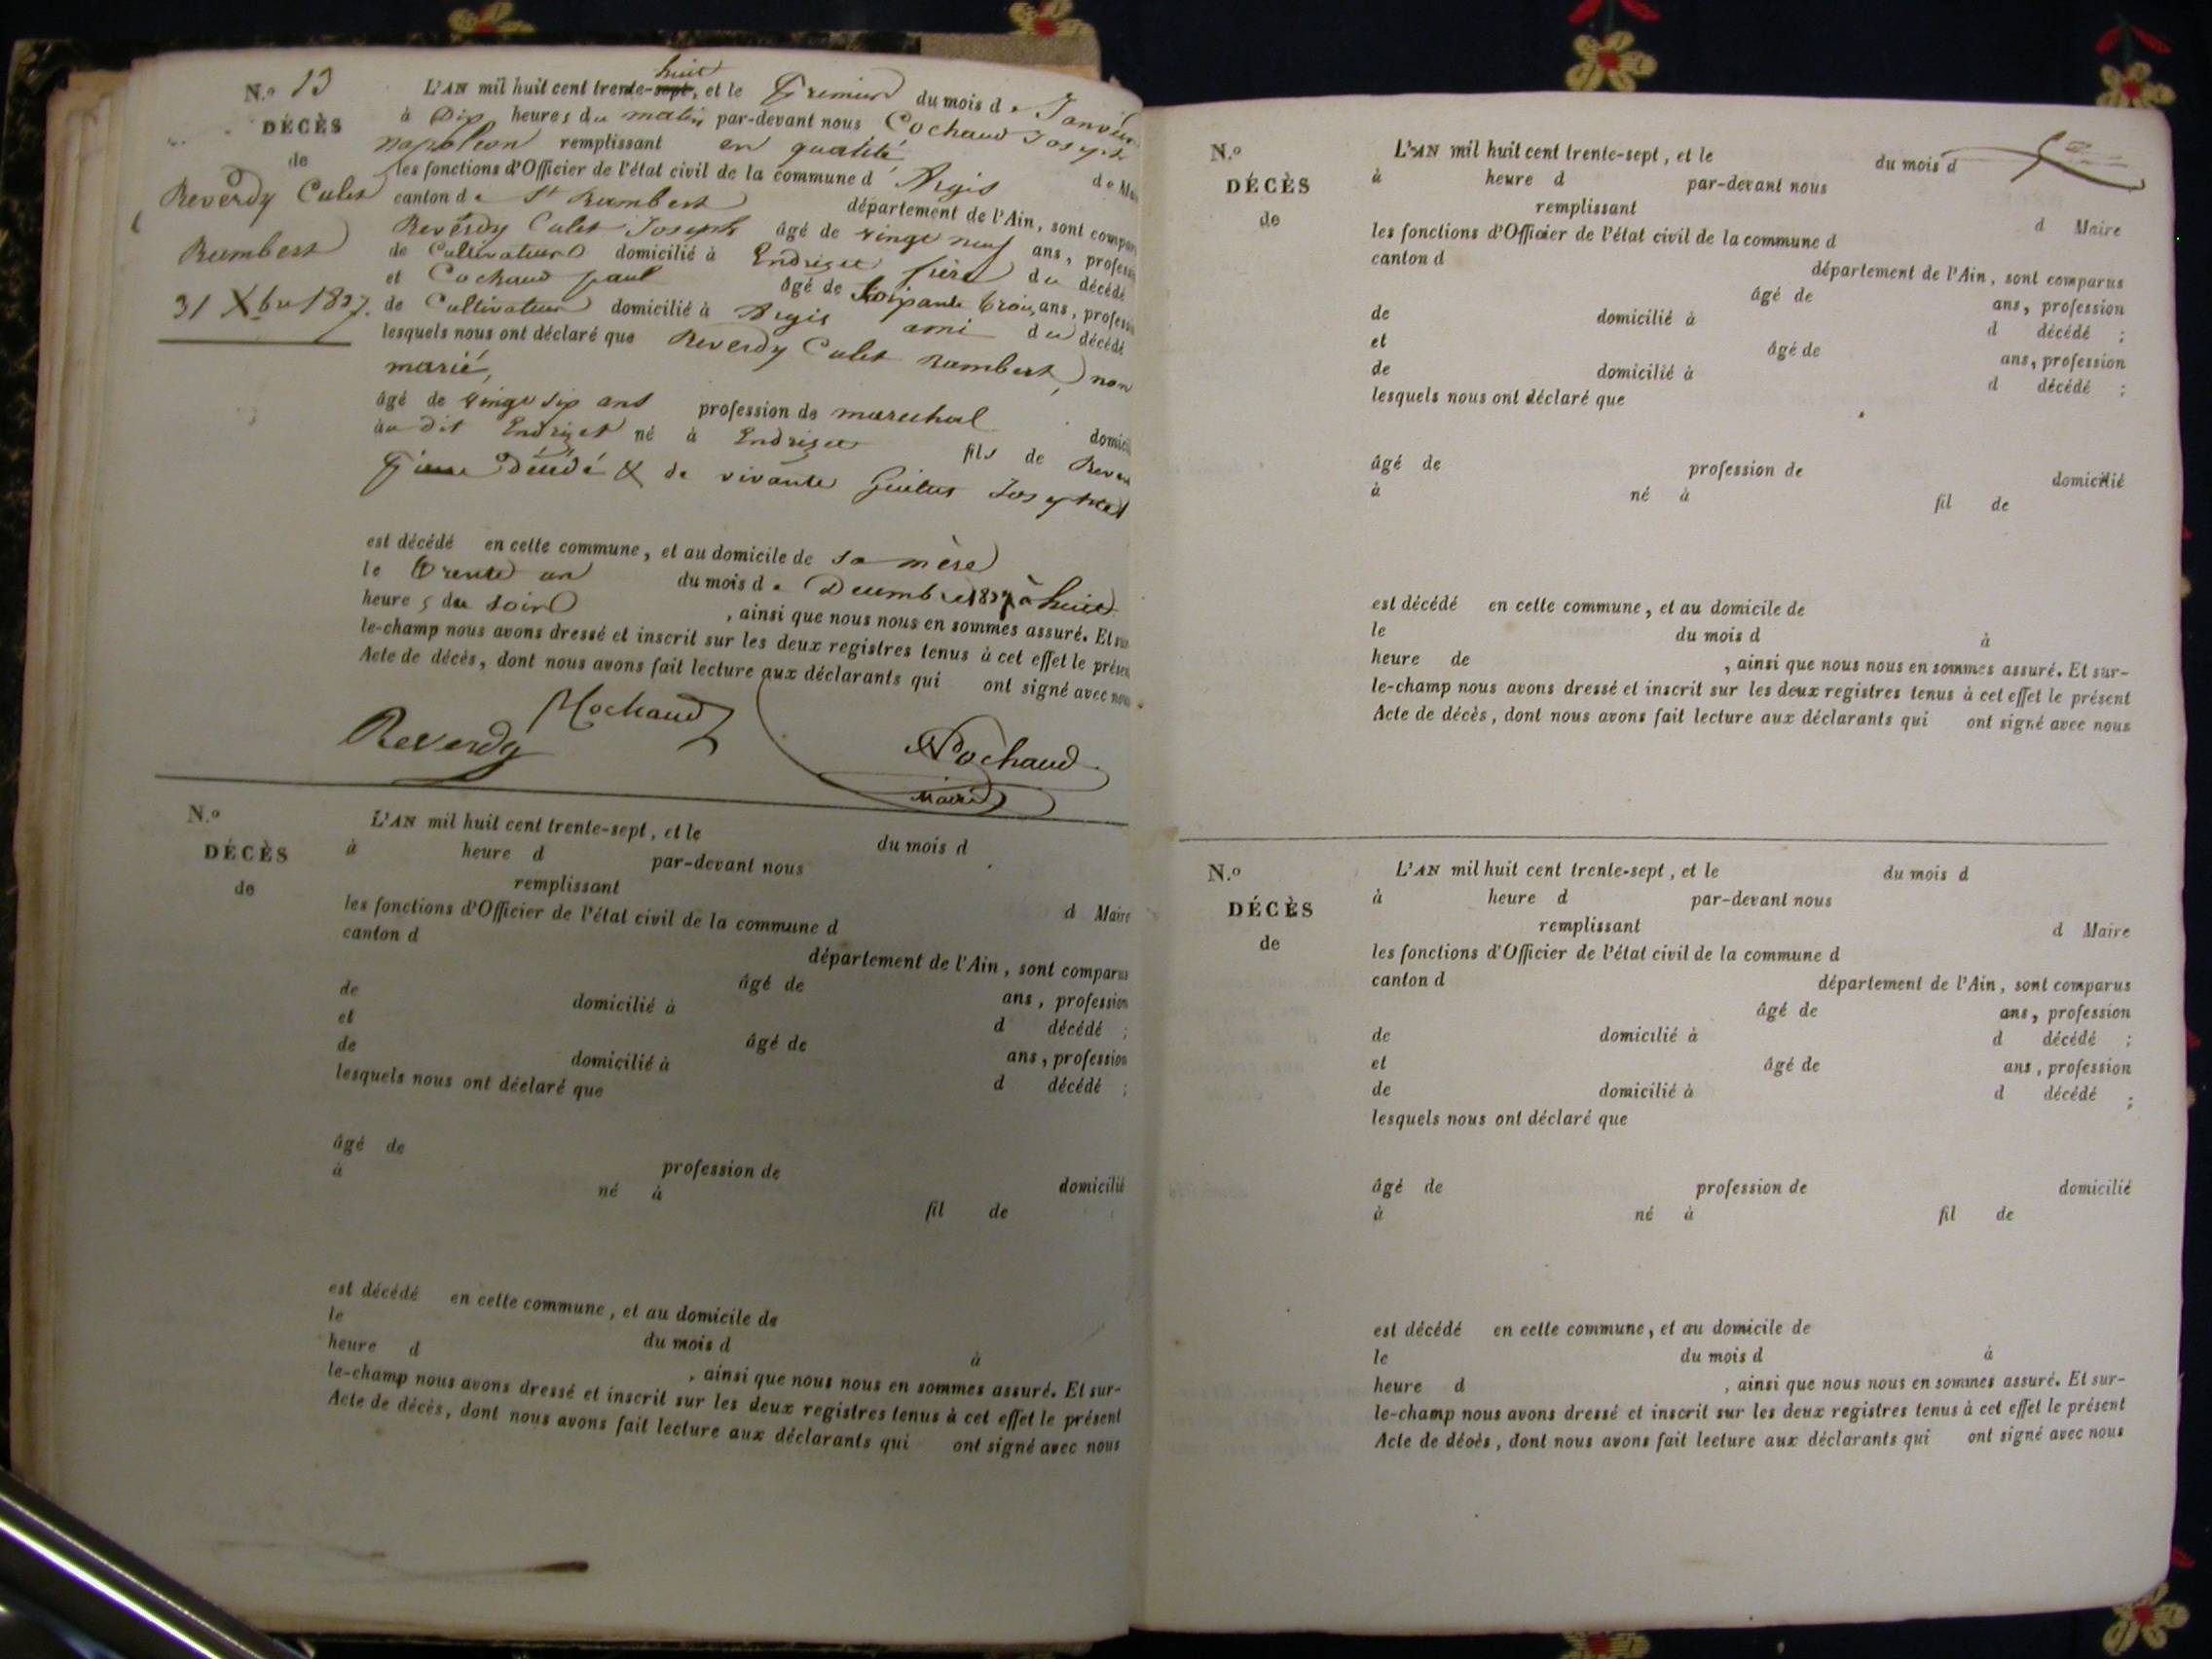 N.o 13
DÉCÈS
de
Reverdy Culet
Rambert
31 Xbre 1837.
huit
L'AN mil huit cent trente-sept, et le Premier du mois de Janvier
à Dix heures du matin par-devant nous Cochaud Joseph
napoléon remplissant en qualité de Maire
les fonctions d'Officier de l'état civil de la commune d'Argis
canton de St Rambert département de l'Ain, sont comparus
Reverdy Culet Joseph âgé de vingt neuf ans, profession
de Cultivateur domicilié à Endrizet frère du décédé
et Cochaud paul âgé de soixante trois ans, profession
de Cultivateur domicilié à Argis ami du décédé
lesquels nous ont déclaré que Reverdy Culet Rambert, non
marié,
âgé de vingt six ans profession de marechal domicilié
au dit Endrizet né à Endrizet fils de
décédé & de vivante Josephte
est décédé en cette commune, et au domicile de sa mère
le trente un du mois de Decembre 1837 à huit
heures du soir, ainsi que nous nous en sommes assuré. Et sur-
le-champ nous avons dressé et inscrit sur les deux registres tenus à cet effet le présent
Acte de décès, dont nous avons fait lecture aux déclarants qui ont signé avec nous
Cochaud
Reverdy
Cochaud
Maire
N.o
DÉCÈS
de
L'AN mil huit cent trente-sept, et le du mois d
à heure d par-devant nous
remplissant d Maire
les fonctions d'Officier de l'état civil de la commune d
canton d département de l'Ain, sont comparus
âgé de ans, profession
de domicilié à d décédé ;
et âgé de ans, profession
de domicilié à d décédé ;
lesquels nous ont déclaré que
âgé de profession de domicilié
à né à fil de
est décédé en cette commune, et au domicile de
le du mois d à
heure d , ainsi que nous nous en sommes assuré. Et sur-
le-champ nous avons dressé et inscrit sur les deux registres tenus à cet effet le présent
Acte de décès, dont nous avons fait lecture aux déclarants qui ont signé avec nous
N.o
DÉCÈS
de
L'AN mil huit cent trente-sept, et le du mois d
à heure d par-devant nous
remplissant d Maire
les fonctions d'Officier de l'état civil de la commune d
canton d département de l'Ain, sont comparus
âgé de ans, profession
de domicilié à d décédé ;
et âgé de ans, profession
de domicilié à d décédé ;
lesquels nous ont déclaré que
âgé de profession de domicilié
à né à fil de
est décédé en cette commune, et au domicile de
le du mois d à
heure de , ainsi que nous nous en sommes assuré. Et sur-
le-champ nous avons dressé et inscrit sur les deux registres tenus à cet effet le présent
Acte de décès, dont nous avons fait lecture aux déclarants qui ont signé avec nous
N.o
DÉCÈS
de
L'AN mil huit cent trente-sept, et le du mois d
à heure d par-devant nous
remplissant d Maire
les fonctions d'Officier de l'état civil de la commune d
canton d département de l'Ain, sont comparus
âgé de ans, profession
de domicilié à d décédé ;
et âgé de ans, profession
de domicilié à d décédé ;
lesquels nous ont déclaré que
âgé de profession de domicilié
à né à fil de
est décédé en cette commune, et au domicile de
le du mois d à
heure d , ainsi que nous nous en sommes assuré. Et sur-
le-champ nous avons dressé et inscrit sur les deux registres tenus à cet effet le présent
Acte de décès, dont nous avons fait lecture aux déclarants qui ont signé avec nous